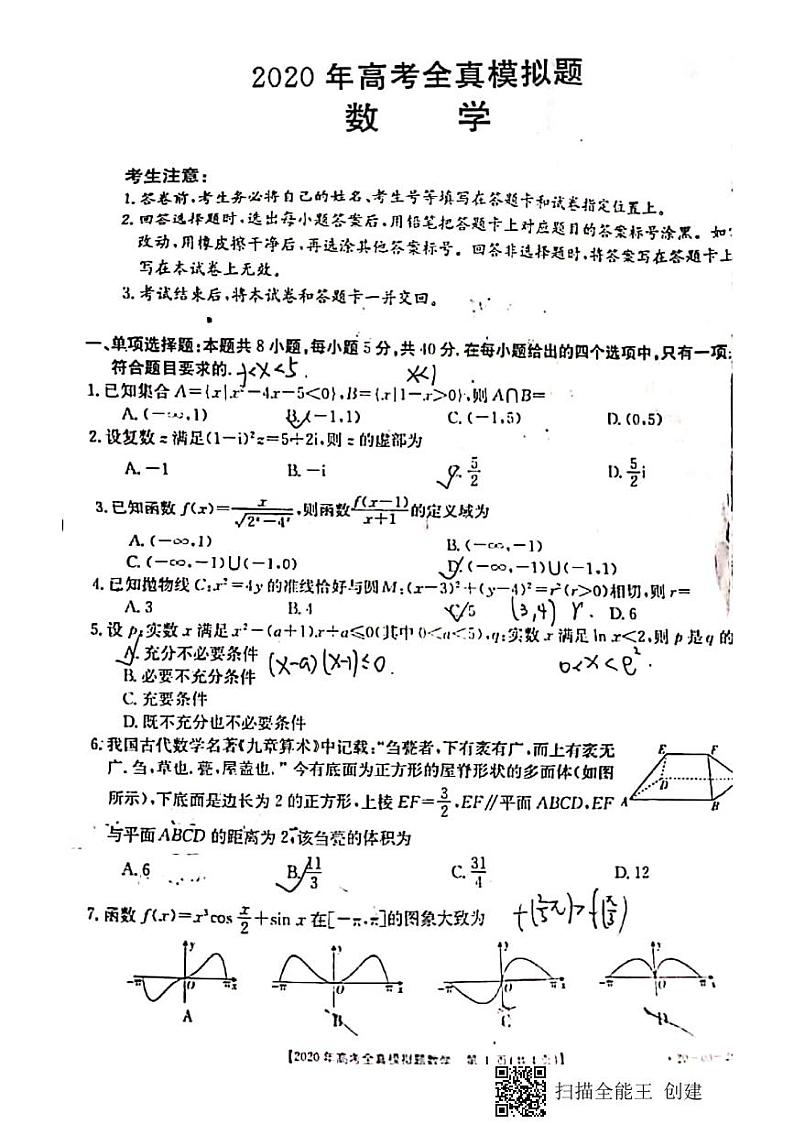 2020 年高考全真模拟题
数 学
考生注意:
1. 答卷前,考生务必将自己的姓名、考生号等填写在答题卡和试卷指定位置上。
2. 回答选择题时,选出每小题答案后,用铅笔把答题卡上对应题目的答案标号涂黑。如
改动,用橡皮擦干净后,再选涂其他答案标号。回答非选择题时,将答案写在答题卡上
写在本试卷上无效。
3. 考试结束后,将本试卷和答题卡一并交回。
一、单项选择题:本题共 8 小题,每小题 5 分,共 40 分. 在每小题给出的四个选项中,只有一项
符合题目要求的. -1<x<5. x<1
1. 已知集合 A={x|x²-4x-5<0},B={x|1-x>0},则 A∩B=
A. (-∞,1) B. (-1,1) C. (-1,5) D. (0,5)
2. 设复数 z 满足(1-i)²z=5+2i,则 z 的虚部为
A. -1 B. -i C. 5/2 D. 5/2 i
3. 已知函数 f(x)=x/√(2ˣ-4ˣ),则函数 f(x-1)/(x+1) 的定义域为
A. (-∞,1) B. (-∞,-1)
C. (-∞,-1)∪(-1,0) D. (-∞,-1)∪(-1,1)
4. 已知抛物线 C:x²=4y 的准线恰好与圆 M:(x-3)²+(y-4)²=r²(r>0)相切,则 r=
A. 3 B. 4 C. 5 (3,4) r. D. 6
5. 设 p:实数 x 满足 x²-(a+1)x+a≤0(其中 0<a<5),q:实数 x 满足 ln x<2,则 p 是 q 的
A. 充分不必要条件
B. 必要不充分条件 (x-a)(x-1)≤0. 0<x<e².
C. 充要条件
D. 既不充分也不必要条件
6. 我国古代数学名著《九章算术》中记载:“刍甍者,下有袤有广,而上有袤无
广. 刍,草也. 甍,屋盖也.”今有底面为正方形的屋脊形状的多面体(如图
所示),下底面是边长为 2 的正方形,上棱 EF=3/2,EF∥平面 ABCD,EF
与平面 ABCD 的距离为 2,该刍甍的体积为
E F
D
A B
A. 6 B. 11/3 C. 31/4 D. 12
7. 函数 f(x)=x³cos x/2+sin x 在[-π,π]的图象大致为 f(2/3π)>f(π/3)
y y y y
-π O π x -π O π x -π O π x -π O π x
A B C D
【2020 年高考全真模拟题数学 第 1 页(共 4 页)】
扫描全能王 创建